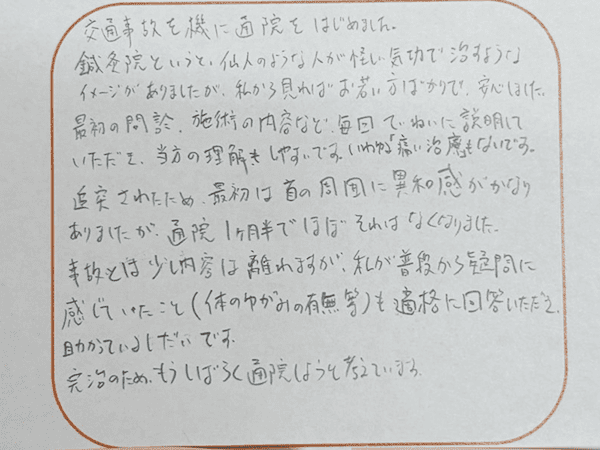 交通事故を機に通院をはじめました。
鍼灸院というと、仙人のような人が怪しい気功で治すような
イメージがありましたが、私から見ればお若い方ばかりで、安心しました。
最初の問診、施術の内容など、毎回ていねいに説明して
いただき、当方の理解もしやすいです。いわゆる「痛い治療」もないです。
追突されたため、最初は首の周囲に異和感がかなり
ありましたが、通院1ヶ月半でほぼそれはなくなりました。
事故とは少し内容は離れますが、私が普段から疑問に
感じていたこと(体のゆがみの有無等)も適格に回答いただき、
助かっているしだいです。
完治のため、もうしばらく通院しようと考えています。